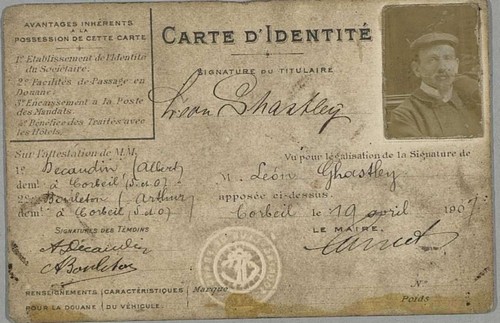 AVANTAGES INHÉRENTS
A LA
POSSESSION DE CETTE CARTE
1º Etablissement de l'Identité
du Sociétaire.
2º Facilités de Passage en
Douane.
3º Encaissement a la Poste
des Mandats.
4º Bénéfice des Traités avec
les Hôtels.
CARTE D'IDENTITÉ
SIGNATURE DU TITULAIRE
Léon Ghastley
Sur l'attestation de M.M.
1º Decaudin (Albert)
demt à Corbeil, S.et.O/
2º Bouleton (Arthur)
demt à Corbeil, S.et.O/
SIGNATURES DES TÉMOINS
A Decaudin
A Bouleton
Vu pour légalisation de la Signature de
M. Léon Ghastley
apposée ci-dessus.
Corbeil le 19 avril 1907
LE MAIRE,
RENSEIGNEMENTS CARACTÉRISTIQUES
POUR LA DOUANE DU VÉHICULE.
Marque
Nº
Poids